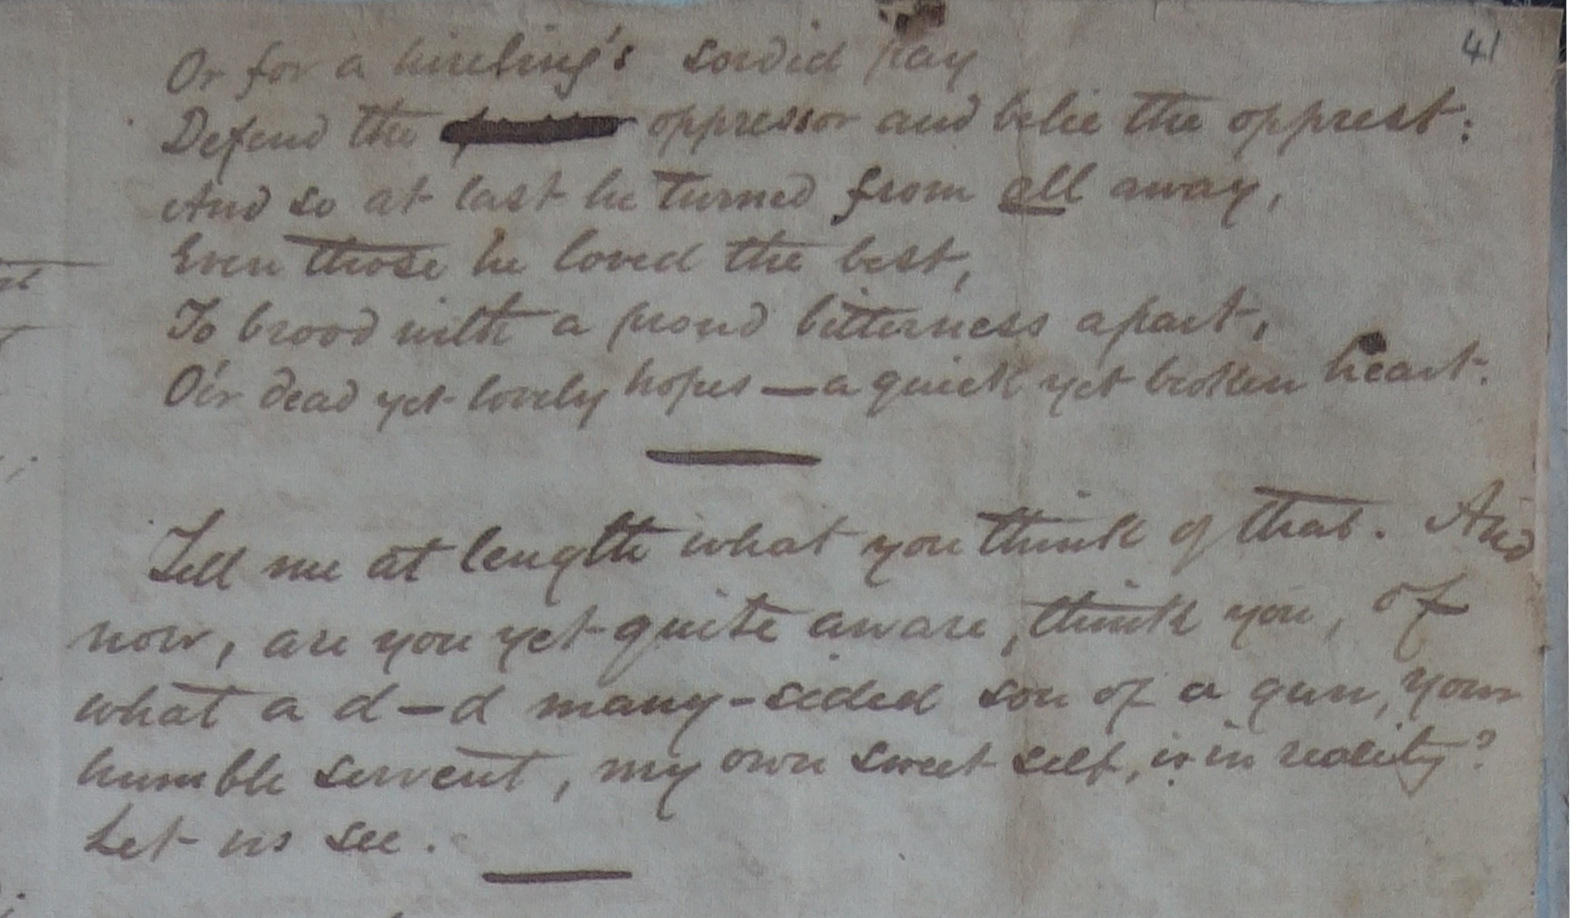 41
Or for a hireling's sordid pay
Defend the oppressor and belie the opprest:
And so at last he turned from all away,
Even those he loved the best,
To brood with a proud bitterness apart,
O'er dead yet lovely hopes — a quick yet broken heart.
Tell me at length what you think of that. And
now, are you yet quite aware, think you, of
what a d—d many-sided son of a gun, your
humble servent, my own sweet self, is in reality?
Let us see.